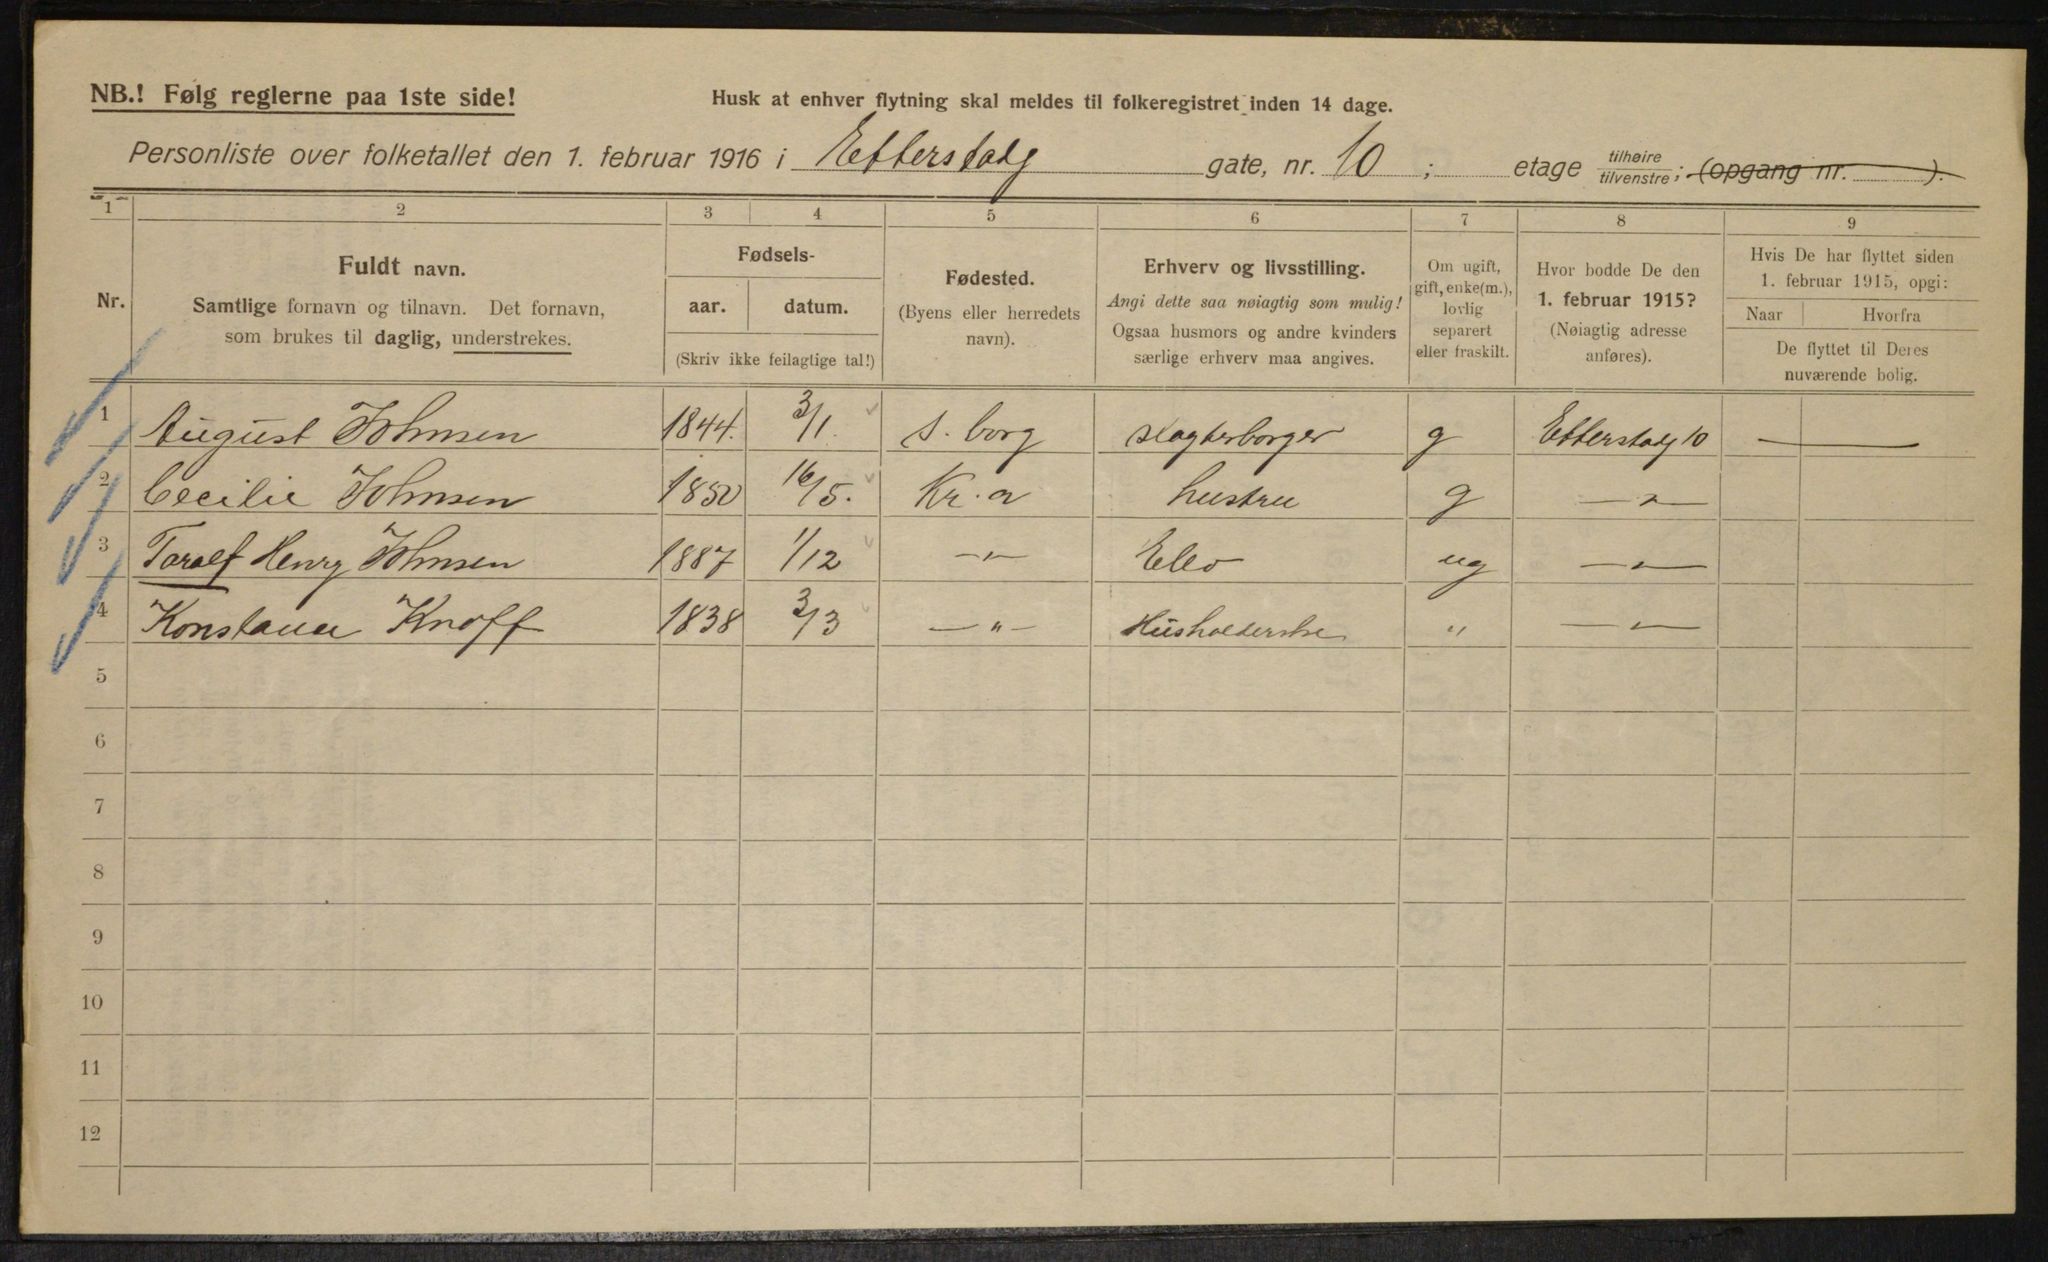 NB.! Følg reglerne paa 1ste side!
Husk at enhver flytning skal meldes til folkeregistret inden 14 dage.
Personliste over folketallet den 1. februar 1916 i Etterstadg gate, nr. 10 ; etage tilhøire tilvenstre ; (opgang nr. ).
1 2 3 4 5 6 7 8 9
Nr.
Fuldt navn.
Samtlige fornavn og tilnavn. Det fornavn,
som brukes til daglig, understrekes.
Fødsels-
aar. datum.
(Skriv ikke feilagtige tal!)
Fødested.
(Byens eller herredets
navn).
Erhverv og livsstilling.
Angi dette saa nøiagtig som mulig!
Ogsaa husmors og andre kvinders
særlige erhverv maa angives.
Om ugift,
gift, enke(m.),
lovlig
separert
eller fraskilt.
Hvor bodde De den
1. februar 1915?
(Nøiagtig adresse
anføres).
Hvis De har flyttet siden
1. februar 1915, opgi:
Naar Hvorfra
De flyttet til Deres
nuværende bolig.
1 August Johnsen 1844. 3/1. S. borg slagterborger g Etterstadg 10 —
2 Cecilie Johnsen 1850 16/5. Kr. a hustru g — " —
3 Toralf Henry Johnsen 1887 1/12 — " — Elev ug — " —
4 Konstance Knoff 1838 3/3 — " — Husholderske " — " —
5
6
7
8
9
10
11
12